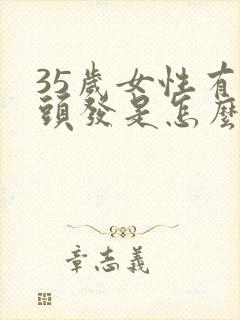 35歲女性有
頭發是怎麼
章志義